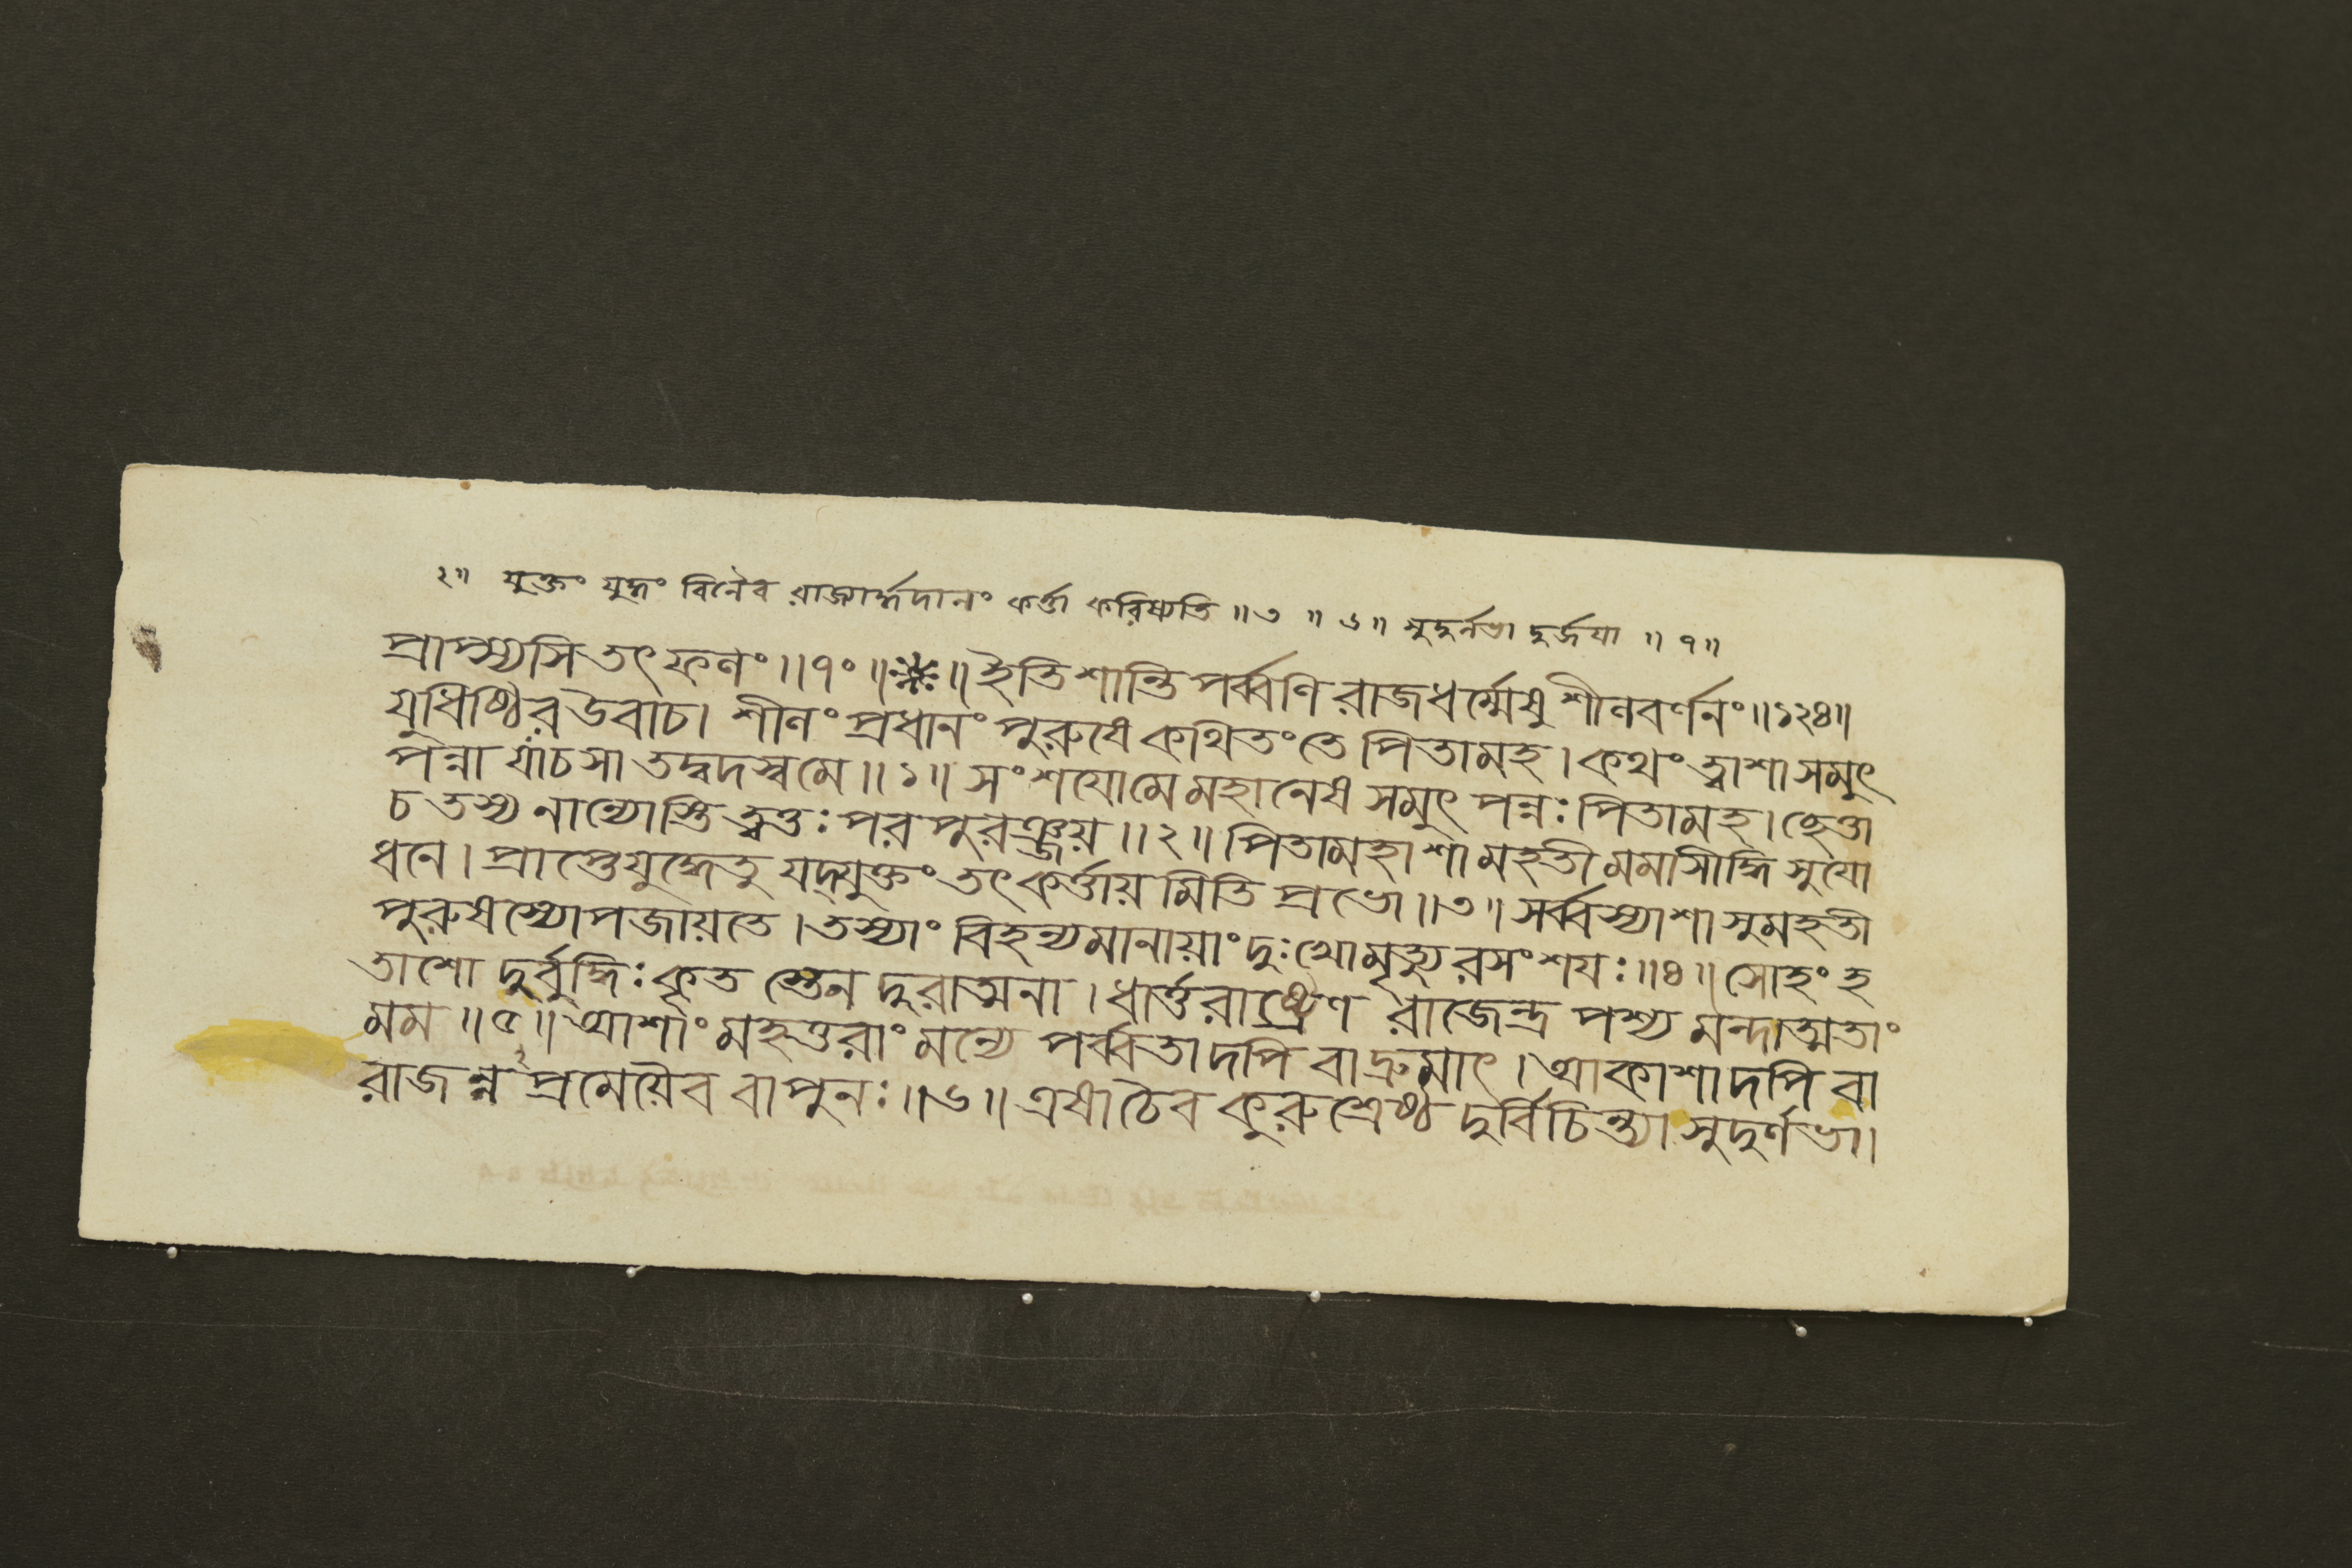 ২॥ যুক্তং যুদ্ধং বিনৈব রাজ্যার্দ্ধদানং কর্ত্তা করিষ্যতি ॥৩॥ ৬॥ সুদুর্লভা দুর্জয়া ॥ ৭॥
প্রাপ্স্যসি তৎ ফলং ॥৭০॥※॥ ইতি শান্তি পর্ব্বণি রাজধর্ম্মেষু শীলবর্ণনং ॥১২৪॥
যুধিষ্ঠির উবাচ। শীলং প্রধানং পুরুষে কথিতং তে পিতামহ। কথং ত্বাশা সমুৎ
পন্না যাচসা তদ্বদস্ব মে ॥১॥ সংশয়ো মে মহানেষ সমুৎ পন্নঃ পিতামহ। ছেত্তা
চ তস্য নান্যোস্তি ত্বত্তঃ পর পুরঞ্জয় ॥২॥ পিতামহাশা মহতী মমাসীদ্ধি সুযো
ধনে। প্রাপ্তে যুদ্ধে তু যদ্যুক্তং তৎ কর্ত্তায় মিতি প্রভো ॥৩॥ সর্ব্বস্যাশা সুমহতী
পুরুষস্যোপজায়তে। তস্যাং বিহন্যমানায়াং দুঃখো মৃত্যু রসংশয়ঃ ॥৪॥ সোহং হ
তাশো দুর্বুদ্ধিঃ কৃত স্তেন দুরাত্মনা। ধার্ত্তরাষ্ট্রেণ রাজেন্দ্র পশ্য মন্দাত্মতাং
মম ॥৫॥ আশাং মহত্তরাং মন্যে পর্ব্বতাদপি বাদ্রুমাৎ। আকাশাদপি বা
রাজন্ন প্রমেয়ৈব বা পুনঃ ॥৬॥ এষা চৈব কুরুশ্রেষ্ঠ দুর্বিচিন্ত্যা সুদুর্লভা।